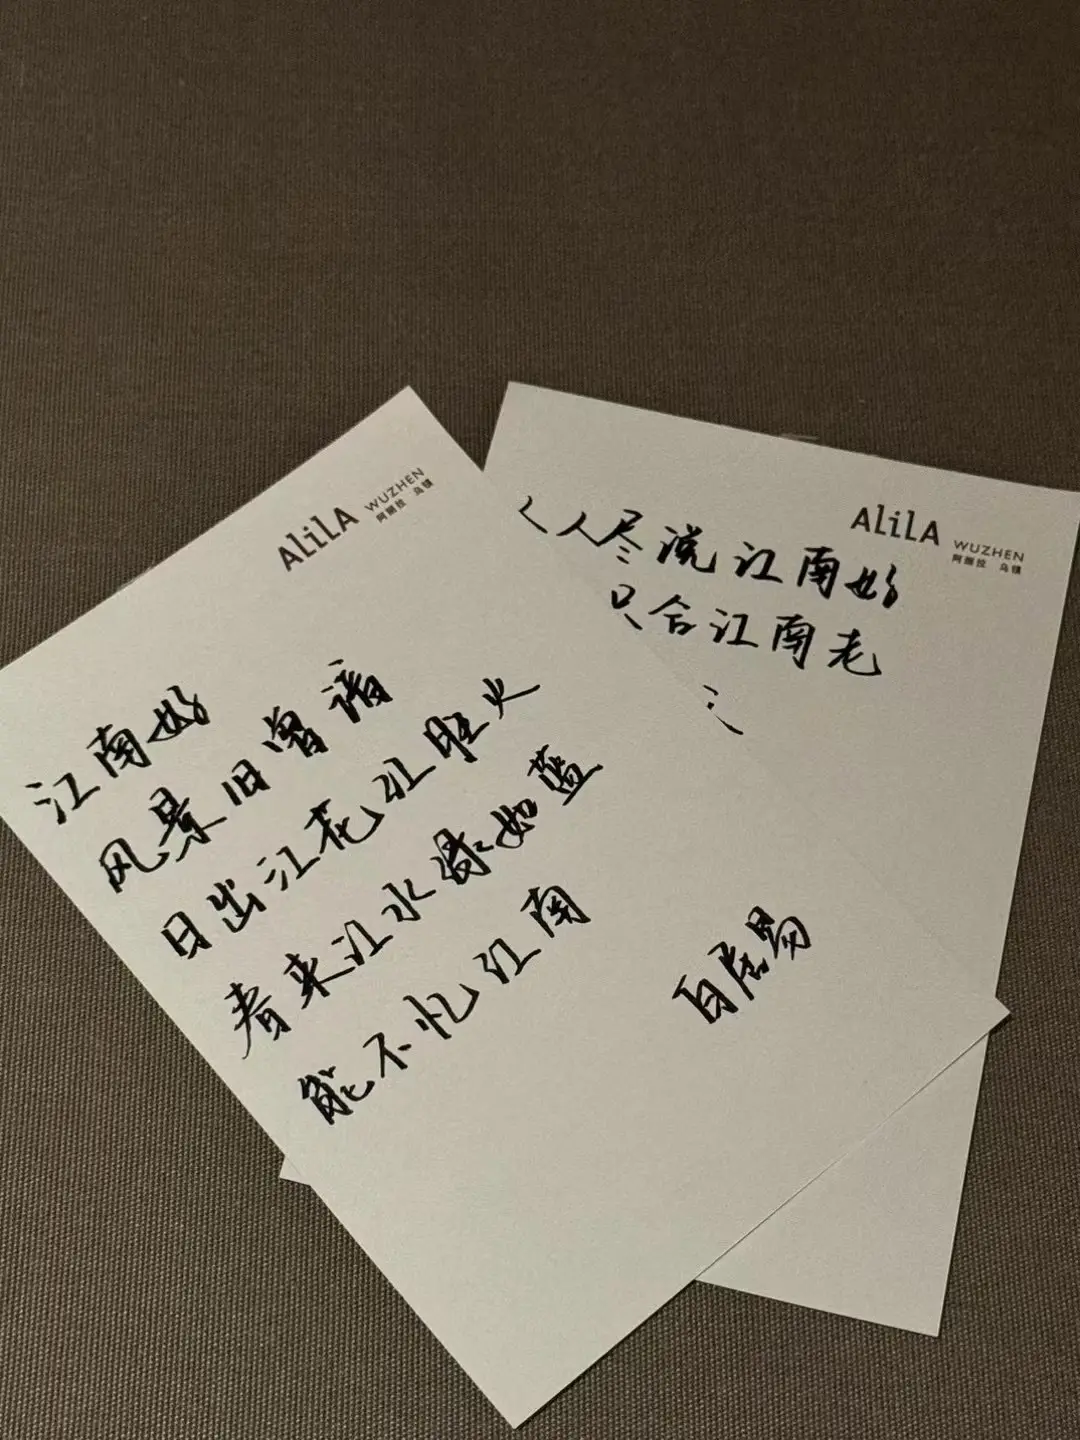 ALiLA WUZHEN
阿丽拉 乌镇
江南好
风景旧曾谙
日出江花江胜火
春来江水绿如蓝
能不忆江南
白居易
ALiLA WUZHEN
阿丽拉 乌镇
人人尽说江南好
只合江南老